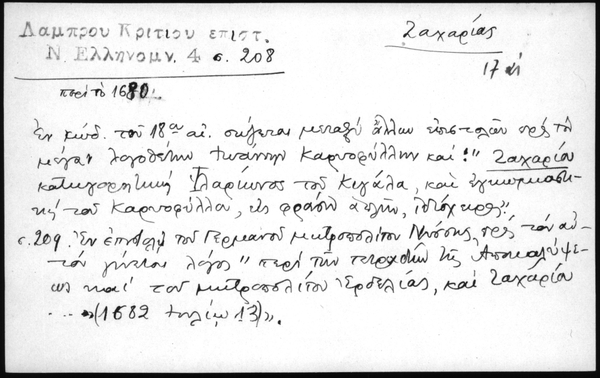 Λαμπρου Κριτιου επιστ.
Ν. Ελληνομν. 4 σ. 208
Ζαχαρίας
17 αἰ
περὶ τὸ 1680.
Ἐν κώδ. τοῦ 18ου αἰ. σώζεται μεταξὺ ἄλλων ἐπιστολῶν πρὸς τὸν
μέγαν λογοθέτην Ἰωάννην Καρυοφύλλην καὶ: " Ζαχαρίου
κατηγορητικὴ Ἱλαρίωνος τοῦ Κιγάλα, καὶ ἐγκωμιαστι-
κὴ τοῦ Καρυοφύλλου, εἰς φράσιν ἁπλῆν, ἰδιόχειρος".
σ. 209. Ἐν ἐπιστολῇ τοῦ Γερμανοῦ μητροπολίτου Νύσσης πρὸς τὸν αὐ-
τὸν γίνεται λόγος " περὶ τῶν τετραδίων τῆς Ἀποκαλύψε-
ως καὶ τοῦ μητροπολίτου Ἐρδελίας, καὶ Ζαχαρίου
... (1682 Ἰουλίῳ 13)».